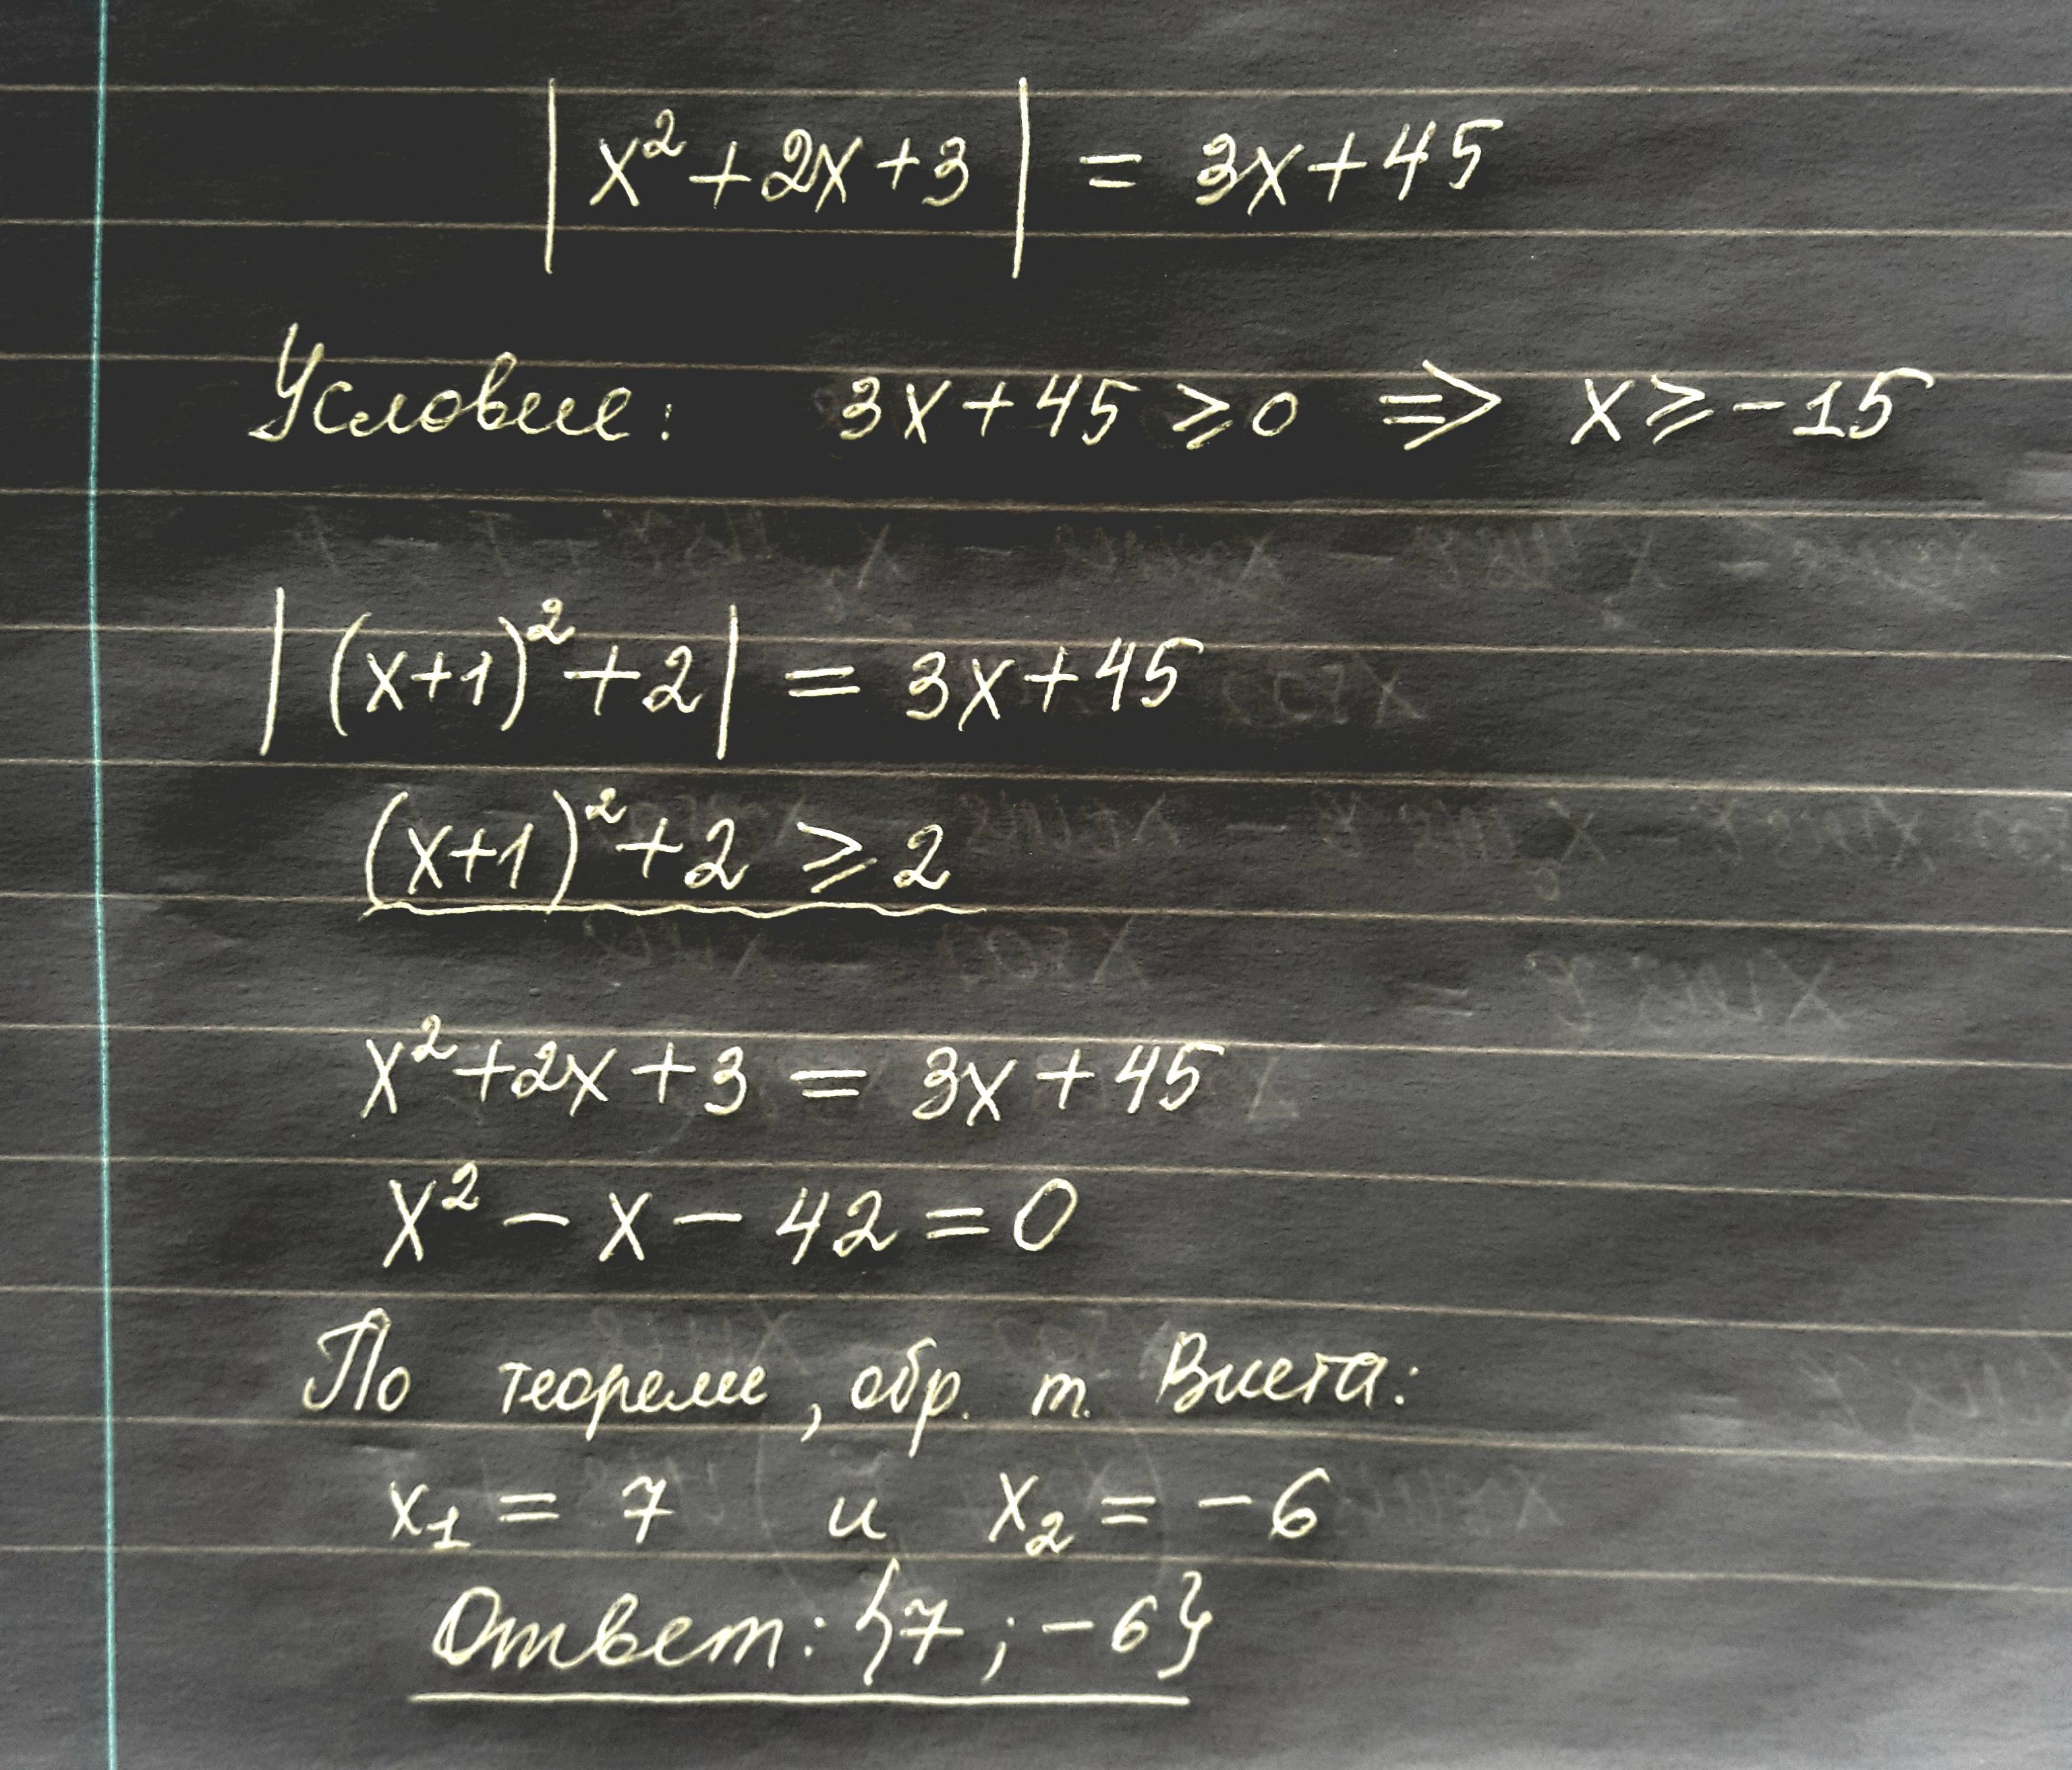 |x²+2x+3| = 3x+45
Условие: 3x+45 ⩾ 0 => x ⩾ -15
|(x+1)²+2| = 3x+45
(x+1)²+2 ⩾ 2
x²+2x+3 = 3x+45
x² - x - 42 = 0
По теореме, обр. т. Виета:
x₁ = 7 и x₂ = -6
Ответ: {7; -6}